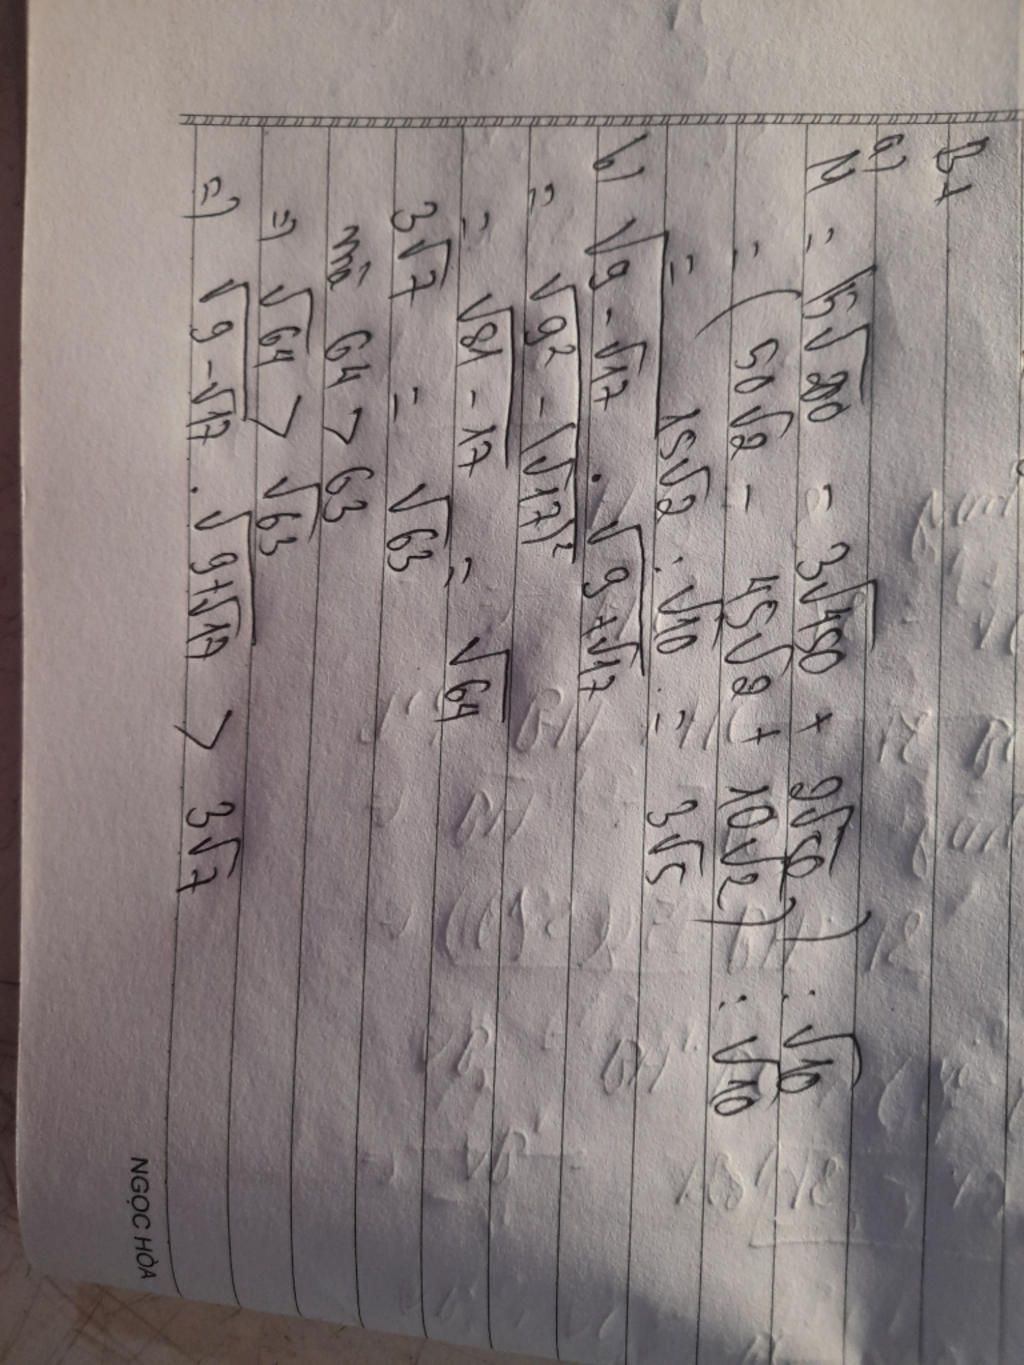 B1
a)
M = (5√200 - 3√450 + 2√50) : √10
= (50√2 - 45√2 + 10√2) : √10
= 15√2 : √10 = 3√5
b) √9-√17 . √9+√17
= √9² - (√17)²
= √81 - 17 = √64
3√7 = √63
mà 64 > 63
=> √64 > √63
=> √9-√17 . √9+√17 > 3√7
NGỌC HÒA